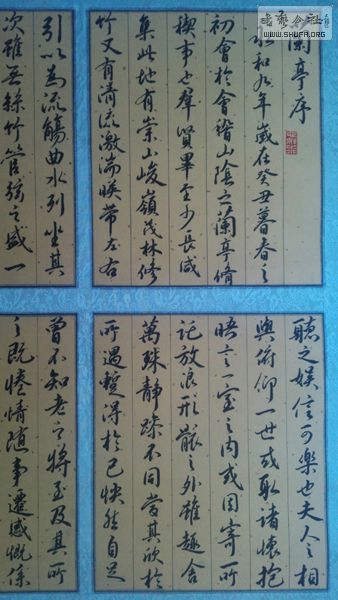 书艺公社
WWW.SHUFA.ORG
蘭亭序
永和九年歲在癸丑暮春之
初會於會稽山陰之蘭亭脩
禊事也群賢畢至少長咸
集此地有崇山峻嶺茂林修
竹又有清流激湍暎帶左右
引以為流觴曲水列坐其
次雖無絲竹管弦之盛一
聽之娛信可樂也夫人之相
與俯仰一世或取諸懷抱
晤言一室之內或因寄所
託放浪形骸之外雖趣舍
萬殊靜躁不同當其欣於
所遇暫得於己快然自足
曾不知老之將至及其所
之既惓情隨事遷感慨係